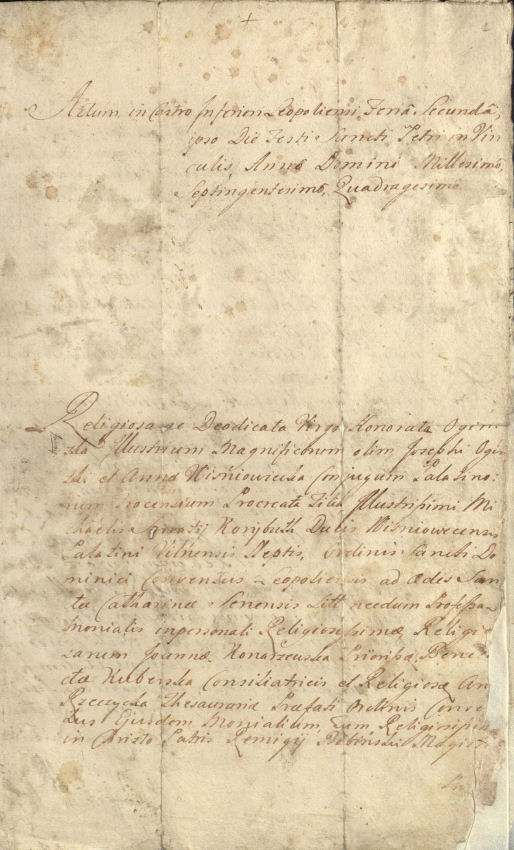 Actum in Castro Inferiori Leopoliensi, Feria Secunda,
ipso Die Festi Sancti Petri in Vin
culis, Anno Domini Millesimo,
Septingentesimo, Quadragesimo
Religiosa ac Deodicata Virgo Honorata Ogin
ska Illustrium Magnificorum olim Josephi Ogin
ski et Anna Wiśniowiecka Conjugum Palatino
rum Trocensium Procreata Filia Illustrissimi Mi
chaelis Korybuth Ducis Wiśniowecensis
Palatini Vilnensis Neptis, Ordinis Sancti Do
minici Conventus Leopoliensis ad Ædis San
ctæ Catharinæ Senensis sitt necdum Professa
Monialis inpersonali Religiosissimæ Religio
sarum Joannæ Konarzewska Priorissæ, Bene
ctæ Kulberska Consiliatricis et Religiosæ An
Rzeczycka Thesaurariæ Præfati Ordinis Conve
tus Ejusdem Monialium, Tum Religiosissi
in Christo Patris Remigij Magist